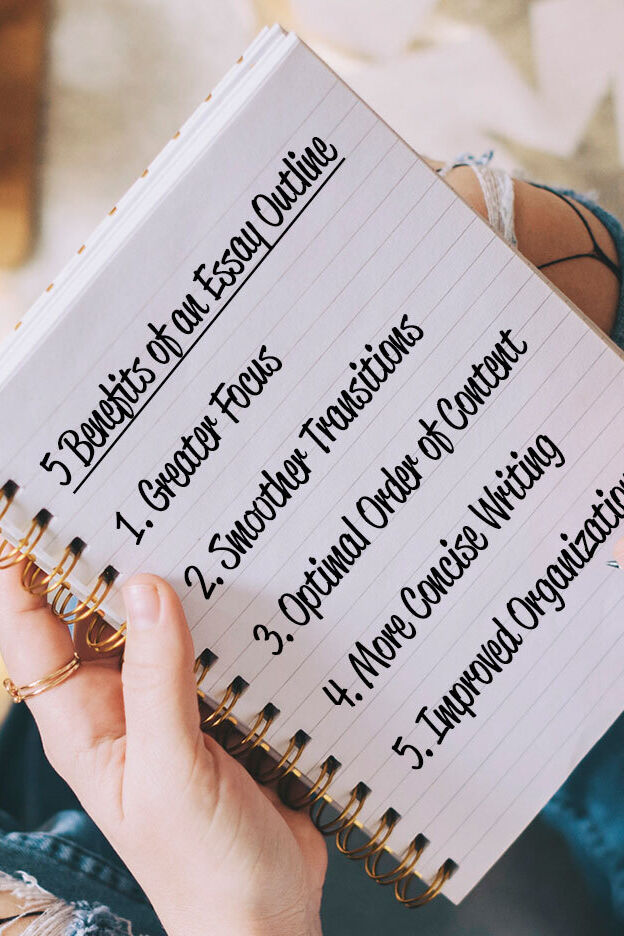 5 Benefits of an Essay Outline
1. Greater Focus
2. Smoother Transitions
3. Optimal Order of Content
4. More Concise Writing
5. Improved Organization